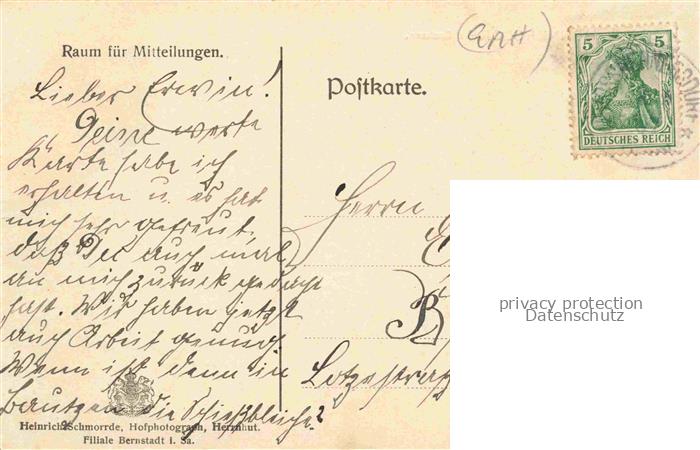 (GRH)
5 5
DEUTSCHES REICH
Raum für Mitteilungen.
Postkarte.
Lieber Erwin!
Deine werte
Karte habe ich
erhalten u. es hat
mich sehr gefreut,
daß Du auch mal
an mich zurück gedacht
hast. Wir haben jetzt
auch Arbeit genug
Wenn ist denn in
Bautzen die Schießbleiche?
Herrn
E
B
Lotzestraß
privacy protection
Datenschutz
Heinrich Schmorrde, Hofphotograph, Herrnhut.
Filiale Bernstadt i. Sa.